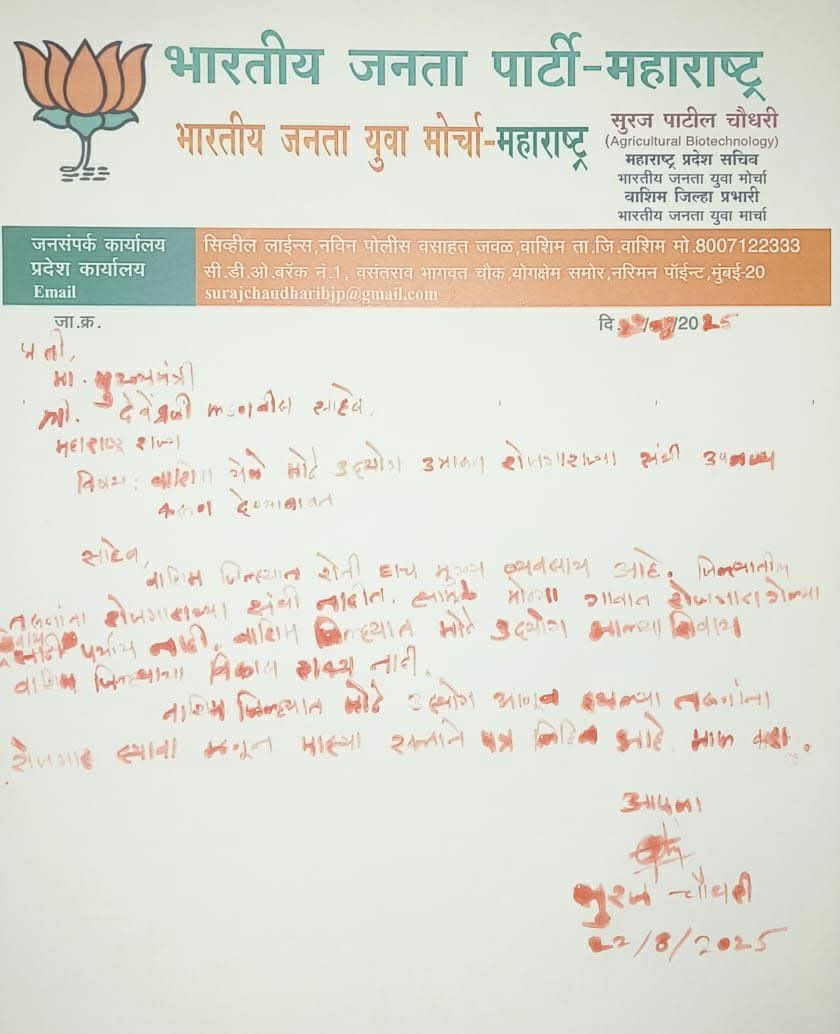 भारतीय जनता पार्टी-महाराष्ट्र
भारतीय जनता युवा मोर्चा-महाराष्ट्र
सुरज पाटील चौधरी
(Agricultural Biotechnology)
महाराष्ट्र प्रदेश सचिव
भारतीय जनता युवा मोर्चा
वाशिम जिल्हा प्रभारी
भारतीय जनता युवा मार्चा
जनसंपर्क कार्यालय सिव्हील लाईन्स,नविन पोलीस वसाहत जवळ,वाशिम ता.जि.वाशिम मो.8007122333
प्रदेश कार्यालय सी.डी.ओ.बरॅक नं.1, वसंतराव भागवत चौक,योगक्षेम समोर,नरिमन पॉईन्ट,मुंबई-20
Email surajchaudharibjp@gmail.com
जा.क्र. दि. 22/8/2025
प्रती,
मा. मुख्यमंत्री
श्री. देवेंद्रजी फडणवीस साहेब.
महाराष्ट्र राज्य
विषय: वाशिम येथे मोठे उद्योग उभारून रोजगाराच्या संधी उपलब्ध
करून देण्याबाबत
साहेब,
वाशिम जिल्ह्यात शेती हाच मुख्य व्यवसाय आहे. जिल्ह्यातील
तरुणांना रोजगाराच्या संधी नाहीत. मोठ्या गावात रोजगारा गेल्या
शिवाय पर्याय नाही. वाशिम जिल्ह्यात मोठे उद्योग आल्या शिवाय
वाशिम जिल्ह्याचा विकास शक्य नाही.
वाशिम जिल्ह्यात मोठे उद्योग आणून इथल्या तरुणांना
रोजगार द्यावा म्हणून माझ्या रक्ताने पत्र लिहित आहे. माफ करा.
आपला
सुरज चौधरी
22/8/2025